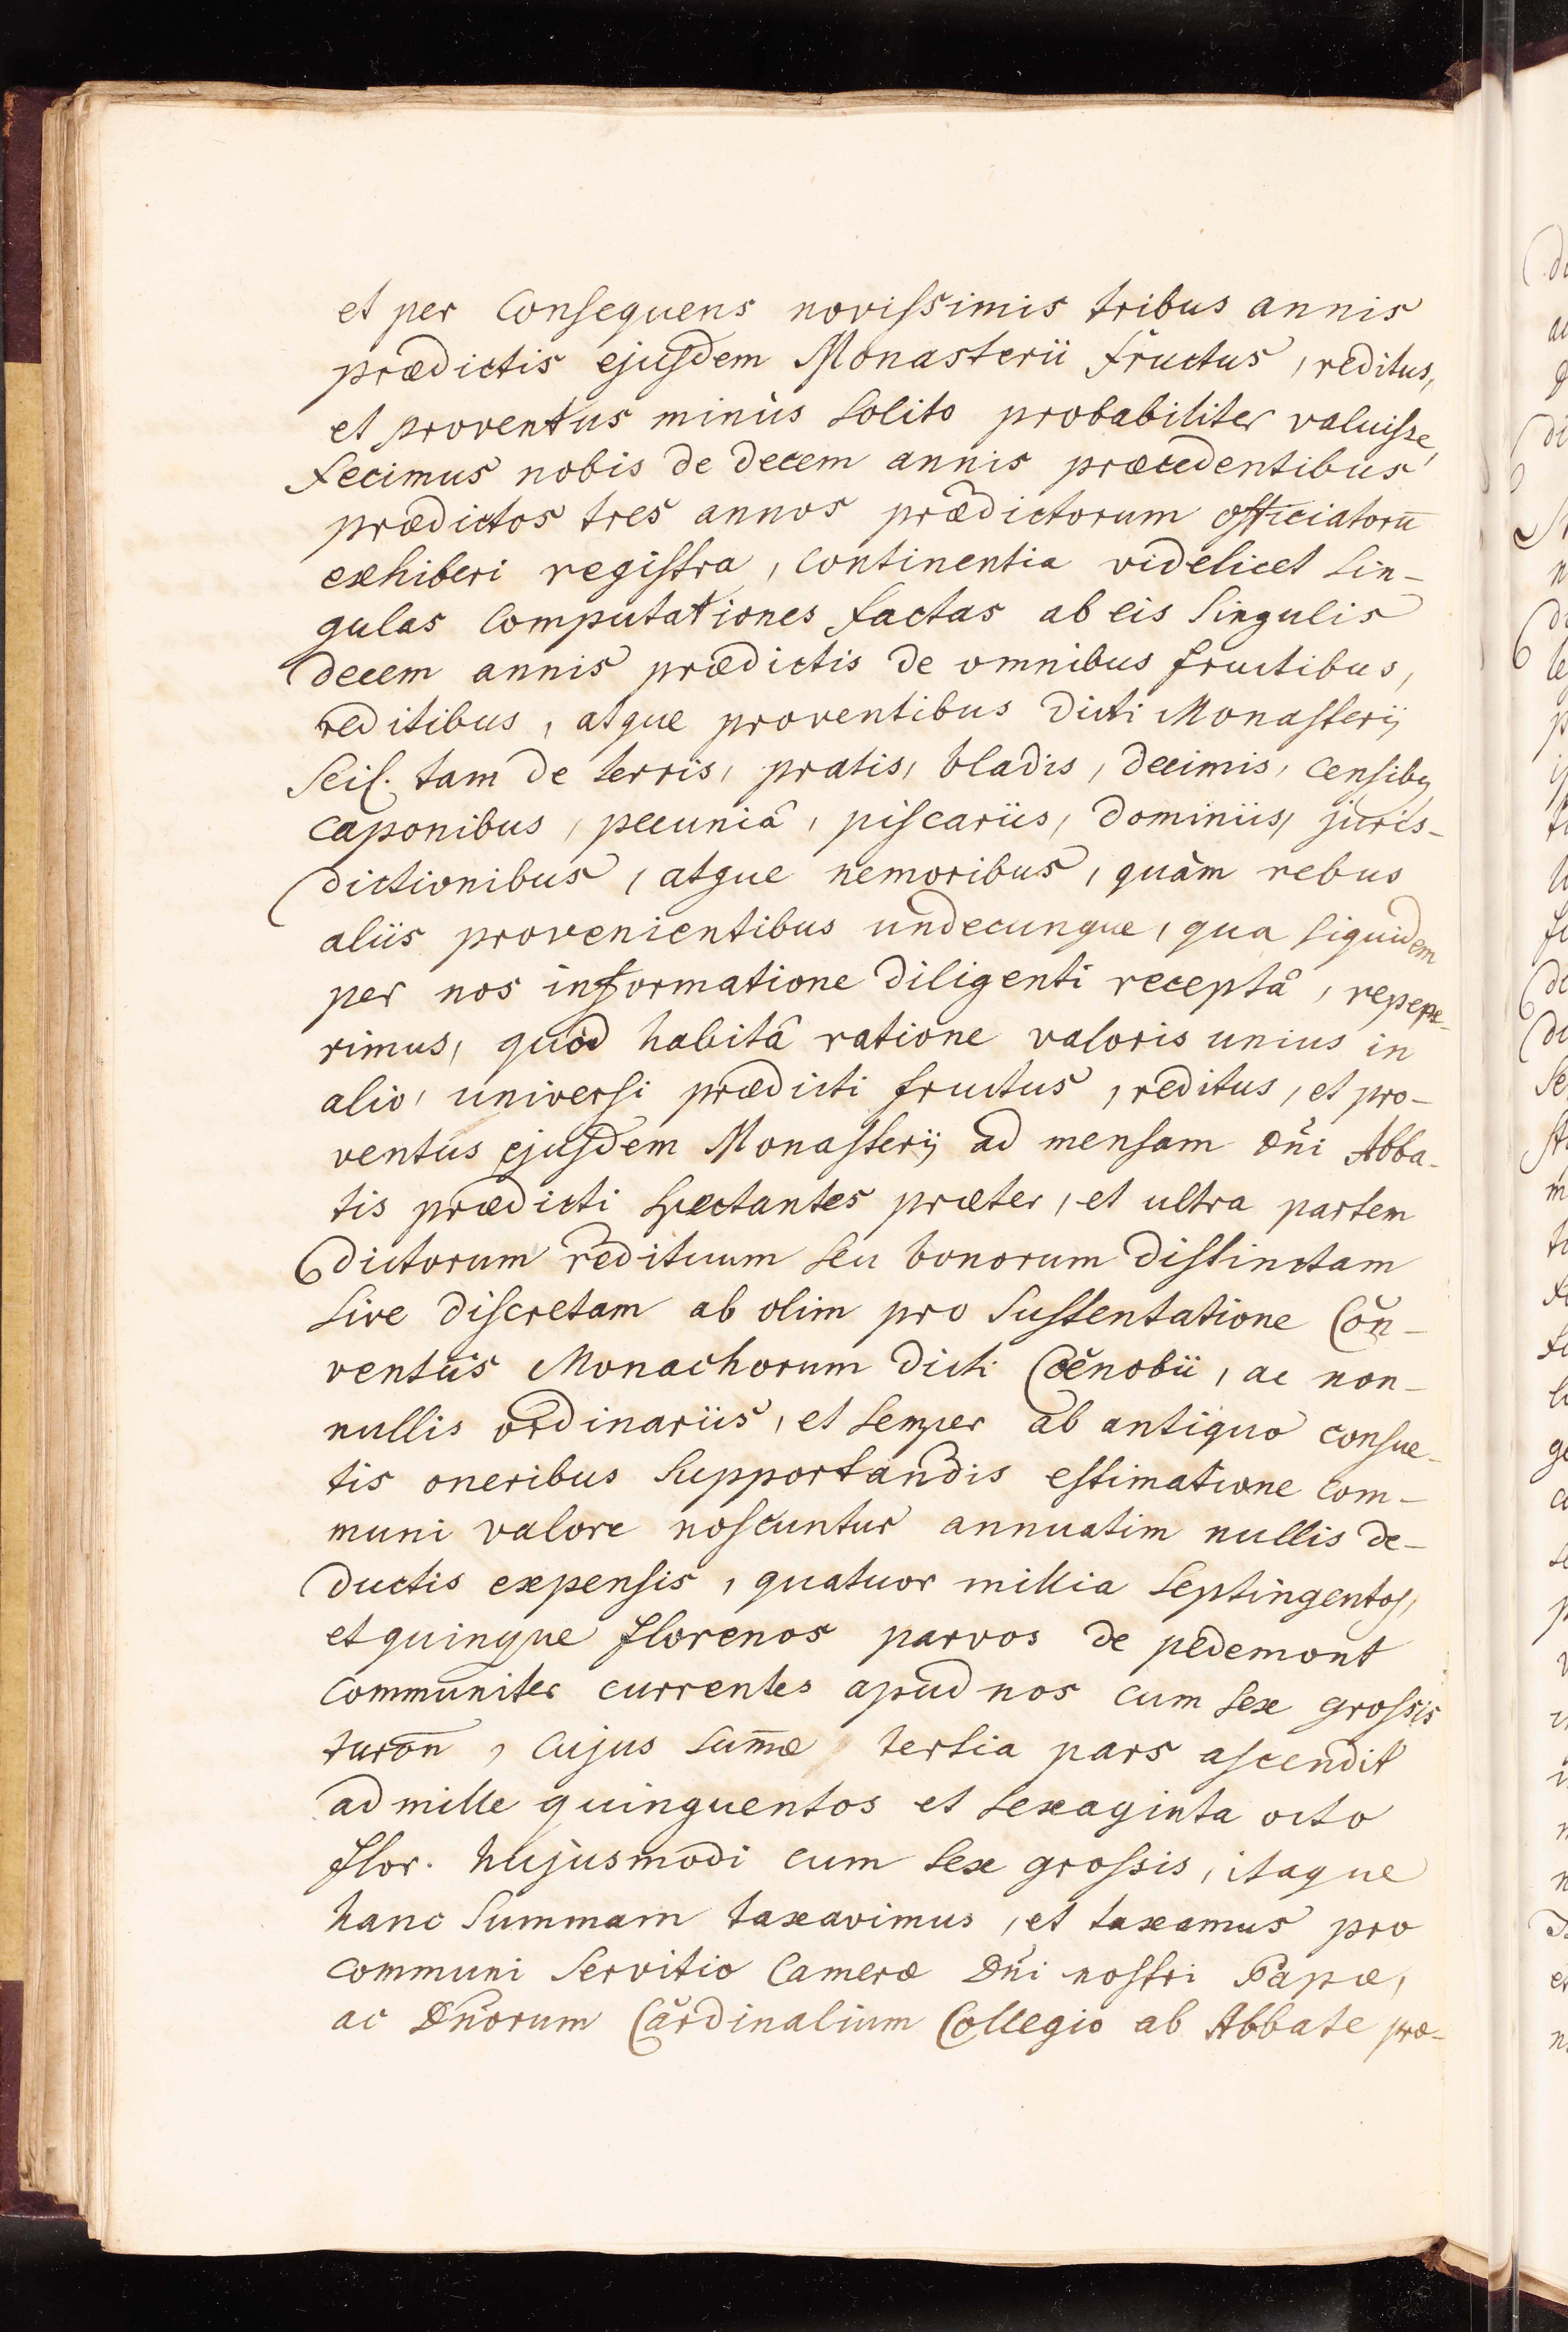 et per Consequens novissimis tribus annis
prædictis ejusdem Monasterii fructus, reditus,
et proventus minùs solito probabiliter valuisse,
fecimus nobis de decem annis præcedentibus
prædictos tres annos prædictorum officiatorū
exhiberi registra, continentia videlicet sin-
gulas Computationes factas ab eis singulis
decem annis prædictis de omnibus fructibus,
reditibus, atque proventibus dicti Monasterij
Scil. tam de terris, pratis, bladis, decimis, censibq
caponibus, pecuniâ, piscariis, dominiis, juris-
dictionibus, atque nemoribus, quàm rebus
aliis provenientibus undecunque, qua siquidem
per nos informatione diligenti receptâ, reppe-
rimus, quod habitâ ratione valoris unius in
alio, universi prædicti fructus, reditus, et pro-
ventus ejusdem Monasterij ad mensam Dñi Abba-
tis prædicti spectantes præter, et ultra partem
dictorum redituum seu bonorum distinctam
sive discretam ab olim pro sustentatione Con-
ventûs Monachorum dicti Cœnobii, ac non-
nullis ordinariis, et semper ab antiquo consue-
tis oneribus supportandis estimatione com-
muni valore noscuntur annuatim nullis de-
ductis expensis, quatuor millia septingentos,
et quinque florenos parvos de pedemont
communiter currentes apud nos cum sex grossis
turoñ, cujus sum̄æ tertia pars ascendit
ad mille quinguentos et sexaginta octo
flor. hujusmodi cum sex grossis, itaque
hanc Summam taxavimus, et taxamus pro
communi servitio Cameræ Dñi nostri Papæ,
ac Dñorum Cardinalium Collegio ab Abbate præ-